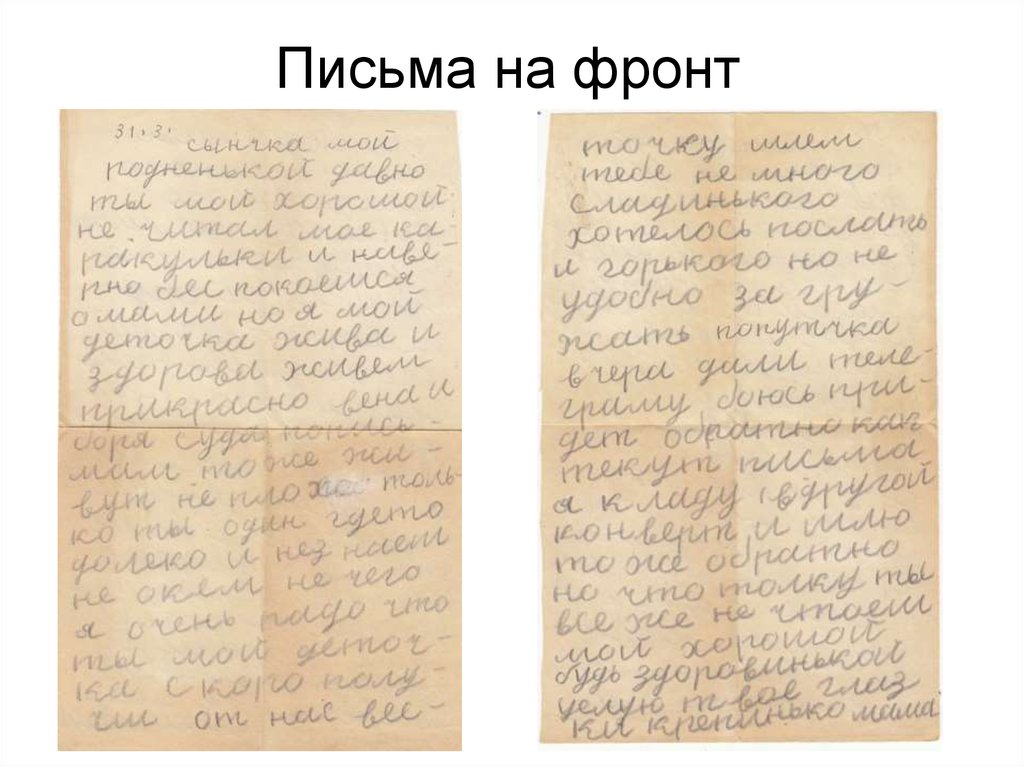 Письма на фронт
31.3.
сынчка мой
подненькой давно
ты мой хорошой
не читал мое ка-
ракульки и наве-
рно бес покоешся
о мами но я мой
деточка жива и
здорова живем
прикрасно вена и
боря суда по
мам то же жи-
вут не плохое толь-
ко ты один гдето
долеко и нез наеш
не окем не чего
я очень радо что
ты мой деточ-
ка скоро полу-
чиш от нас вес-
точку шлем
тебе не много
сладинького
хотелось послать
и горького но не
удобно за гру-
жать попутчка
вчера дали теле-
граму боюсь при-
дет обратно как
текут письма
я кладу вдругой
конверт и шлю
то же обратно
но что толку ты
все же не чтоеш
мой хорошой
будь здоровинькой
целую твое глаз
ки крепинько мама